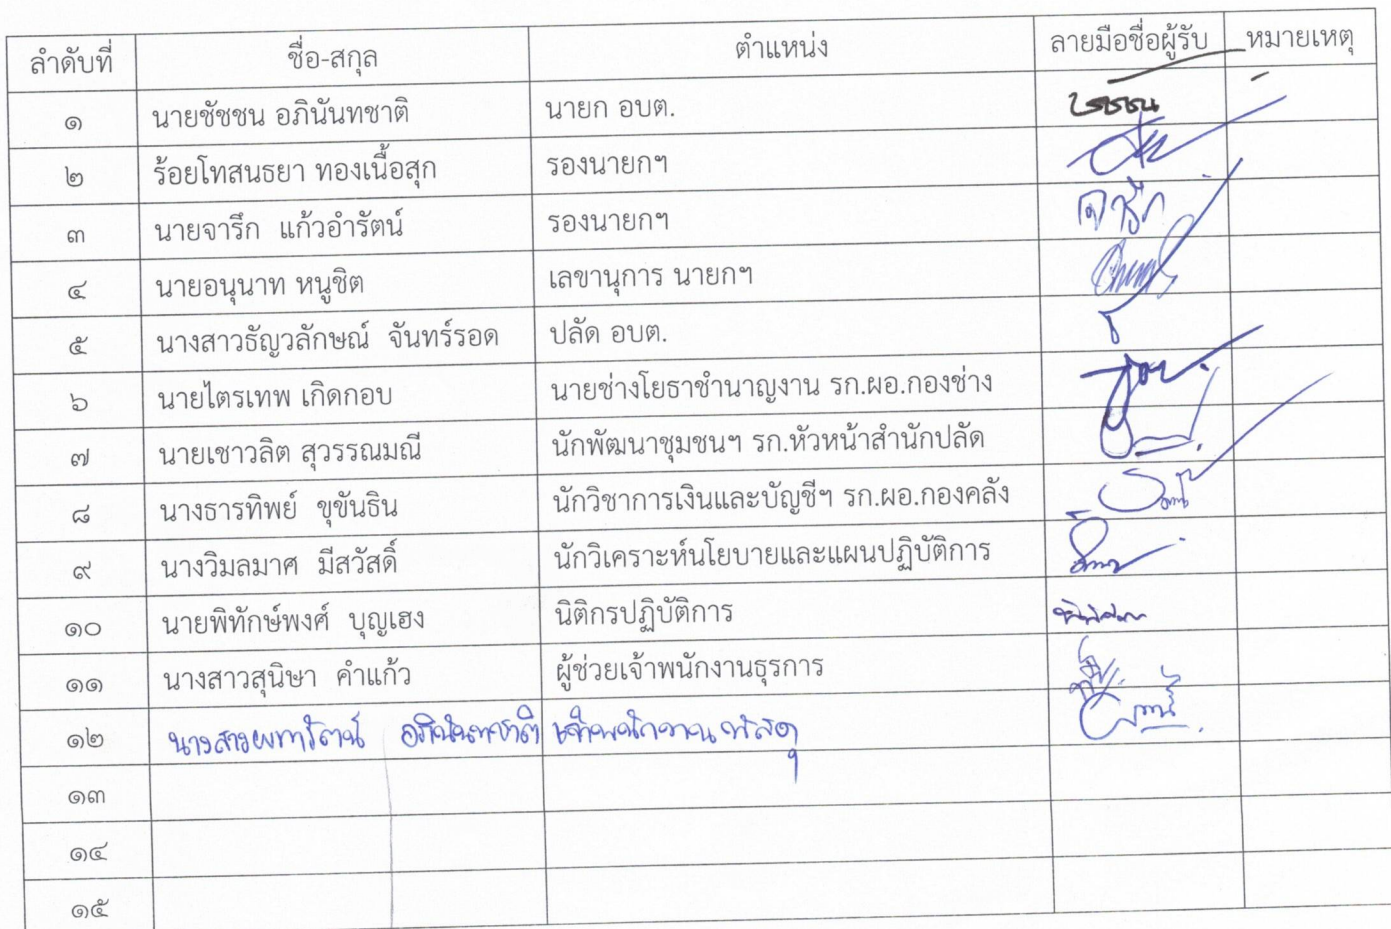 ลำดับที่ ชื่อ-สกุล ตำแหน่ง ลายมือชื่อผู้รับ หมายเหตุ
๑ นายชัชชน อภินันทชาติ นายก อบต. ชัชชน
๒ ร้อยโทสนธยา ทองเนื้อสุก รองนายกฯ
๓ นายจารึก แก้วอำรัตน์ รองนายกฯ จารึก
๔ นายอนุนาท หนูชิต เลขานุการ นายกฯ
๕ นางสาวธัญวลักษณ์ จันทร์รอด ปลัด อบต.
๖ นายไตรเทพ เกิดกอบ นายช่างโยธาชำนาญงาน รก.ผอ.กองช่าง
๗ นายเชาวลิต สุวรรณมณี นักพัฒนาชุมชนฯ รก.หัวหน้าสำนักปลัด
๘ นางธารทิพย์ ขุขันธิน นักวิชาการเงินและบัญชีฯ รก.ผอ.กองคลัง
๙ นางวิมลมาศ มีสวัสดิ์ นักวิเคราะห์นโยบายและแผนปฏิบัติการ
๑๐ นายพิทักษ์พงศ์ บุญเฮง นิติกรปฏิบัติการ
๑๑ นางสาวสุนิษา คำแก้ว ผู้ช่วยเจ้าพนักงานธุรการ
๑๒ นางสาว อภินันทชาติ เจ้าพนักงานพัสดุ
๑๓
๑๔
๑๕